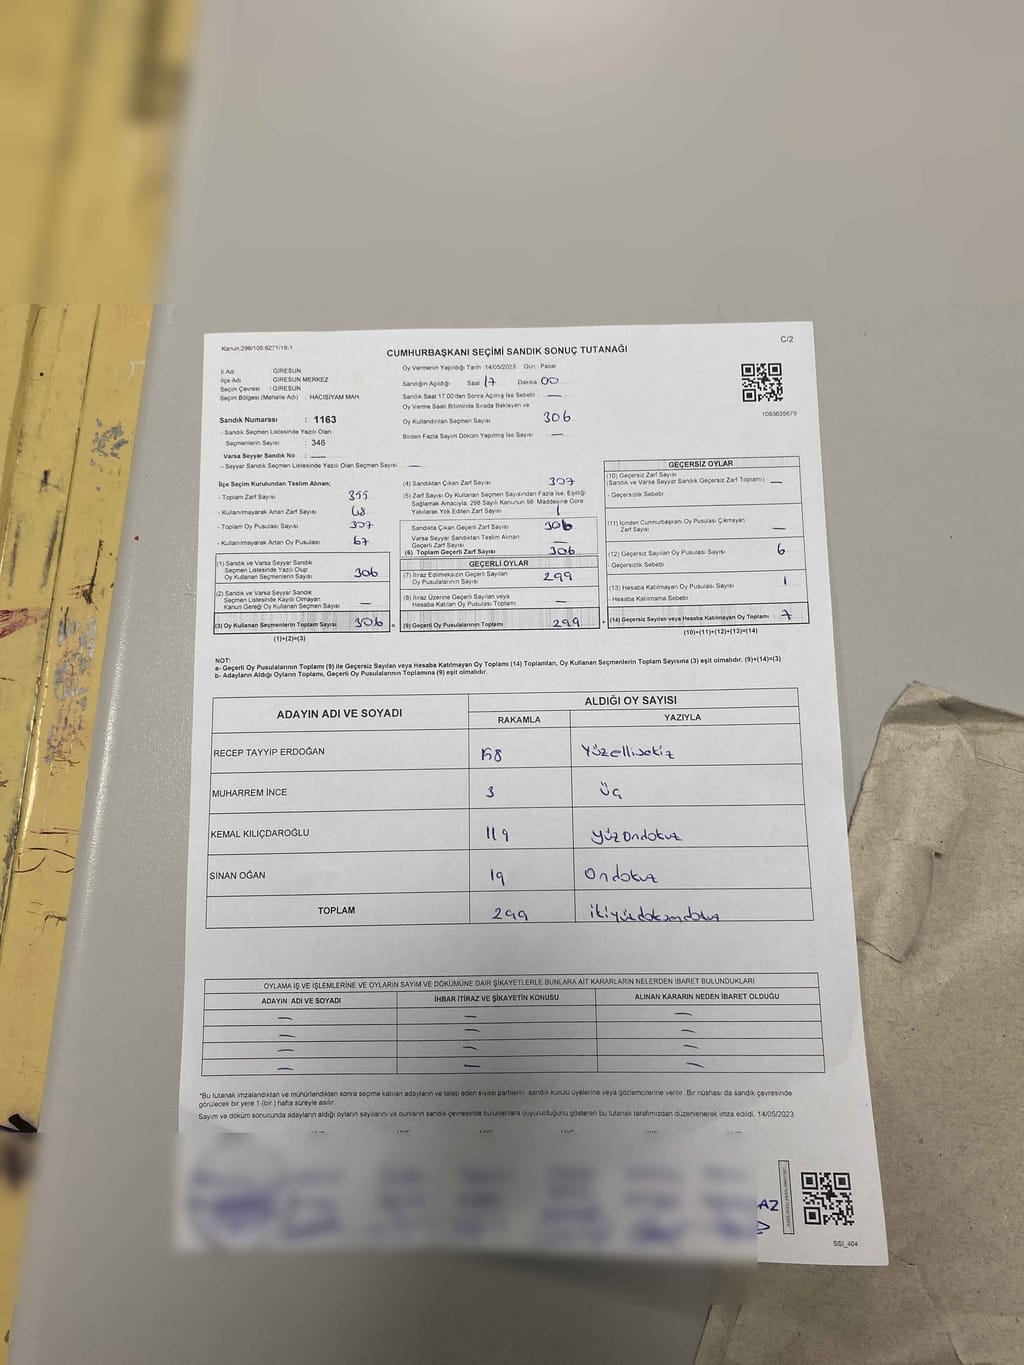 Kanun:298/108.6271/18-1
C/2
CUMHURBAŞKANI SEÇİMİ SANDIK SONUÇ TUTANAĞI
İl Adı : GİRESUN
İlçe Adı : GİRESUN MERKEZ
Seçim Çevresi : GİRESUN
Seçim Bölgesi (Mahalle Adı) : HACISİYAM MAH
Sandık Numarası : 1163
- Sandık Seçmen Listesinde Yazılı Olan
Seçmenlerin Sayısı : 346
Varsa Seyyar Sandık No : —
- Seyyar Sandık Seçmen Listesinde Yazılı Olan Seçmen Sayısı : —
Oy Vermenin Yapıldığı Tarih :14/05/2023 Gün : Pazar
Sandığın Açıldığı Saat 17 Dakika 00
Sandık Saat 17:00'den Sonra Açmış İse Sebebi —
Oy Verme Saati Bitiminde Sırada Bekleyen ve
Oy Kullandırılan Seçmen Sayısı 306
Birden Fazla Sayım Döküm Yapılmış İse Sayısı —
1093635679
İlçe Seçim Kurulundan Teslim Alınan;
- Toplam Zarf Sayısı 355
- Kullanılmayarak Artan Zarf Sayısı 48
- Toplam Oy Pusulası Sayısı 307
- Kullanılmayarak Artan Oy Pusulası 67
(1) Sandık ve Varsa Seyyar Sandık
Seçmen Listesinde Yazılı Olup
Oy Kullanan Seçmenlerin Sayısı 306
(2) Sandık ve Varsa Seyyar Sandık
Seçmen Listesinde Kayıtlı Olmayan
Kanun Gereği Oy Kullanan Seçmen Sayısı —
(3) Oy Kullanan Seçmenlerin Toplam Sayısı 306 =
(1)+(2)=(3)
(4) Sandıktan Çıkan Zarf Sayısı 307
(5) Zarf Sayısı Oy Kullanan Seçmen Sayısından Fazla İse; Eşitliği
Sağlamak Amacıyla, 298 Sayılı Kanunun 98. Maddesine Göre
Yakılarak Yok Edilen Zarf Sayısı 1
Sandıkta Çıkan Geçerli Zarf Sayısı 306
Varsa Seyyar Sandıktan Teslim Alınan
Geçerli Zarf Sayısı —
(6) Toplam Geçerli Zarf Sayısı 306
GEÇERLİ OYLAR
(7) İtiraz Edilmeksizin Geçerli Sayılan
Oy Pusulalarının Sayısı 299
(8) İtiraz Üzerine Geçerli Sayılan veya
Hesaba Katılan Oy Pusulası Toplamı —
(9) Geçerli Oy Pusulalarının Toplamı 299 +
GEÇERSİZ OYLAR
(10) Geçersiz Zarf Sayısı
(Sandık ve Varsa Seyyar Sandık Geçersiz Zarf Toplamı) —
- Geçersizlik Sebebi
(11) İçinden Cumhurbaşkanı Oy Pusulası Çıkmayan
Zarf Sayısı —
(12) Geçersiz Sayılan Oy Pusulası Sayısı 6
- Geçersizlik Sebebi
(13) Hesaba Katılmayan Oy Pusulası Sayısı 1
- Hesaba Katılmama Sebebi
(14) Geçersiz Sayılan veya Hesaba Katılmayan Oy Toplamı 7
(10)+(11)+(12)+(13)=(14)
NOT:
a- Geçerli Oy Pusulalarının Toplamı (9) ile Geçersiz Sayılan veya Hesaba Katılmayan Oy Toplamı (14) Toplamları, Oy Kullanan Seçmenlerin Toplam Sayısına (3) eşit olmalıdır. (9)+(14)=(3)
b- Adayların Aldığı Oyların Toplamı, Geçerli Oy Pusulalarının Toplamına (9) eşit olmalıdır.
ADAYIN ADI VE SOYADI
ALDIĞI OY SAYISI
RAKAMLA YAZIYLA
RECEP TAYYİP ERDOĞAN 158 Yüzellisekiz
MUHARREM İNCE 3 Üç
KEMAL KILIÇDAROĞLU 119 yüzondokuz
SİNAN OĞAN 19 Ondokuz
TOPLAM 299 ikiyüzdoksandokuz
OYLAMA İŞ VE İŞLEMLERİNE VE OYLARIN SAYIM VE DÖKÜMÜNE DAİR ŞİKAYETLERLE BUNLARA AİT KARARLARIN NELERDEN İBARET BULUNDUKLARI
ADAYIN ADI VE SOYADI İHBAR İTİRAZ VE ŞİKAYETİN KONUSU ALINAN KARARIN NEDEN İBARET OLDUĞU
— — —
— — —
— — —
— — —
*Bu tutanak imzalandıktan ve mühürlendikten sonra seçime katılan adayların ve talep eden siyasi partilerin sandık kurulu üyelerine veya gözlemcilerine verilir. Bir nüshası da sandık çevresinde
görülecek bir yere 1 (bir) hafta süreyle asılır.
Sayım ve döküm sonucunda adayların aldığı oyların sayılarını ve bunların sandık çevresinde bulunanlara duyurulduğunu gösteren bu tutanak tarafımızdan düzenlenerek imza edildi. 14/05/2023
AZ
SSI_404